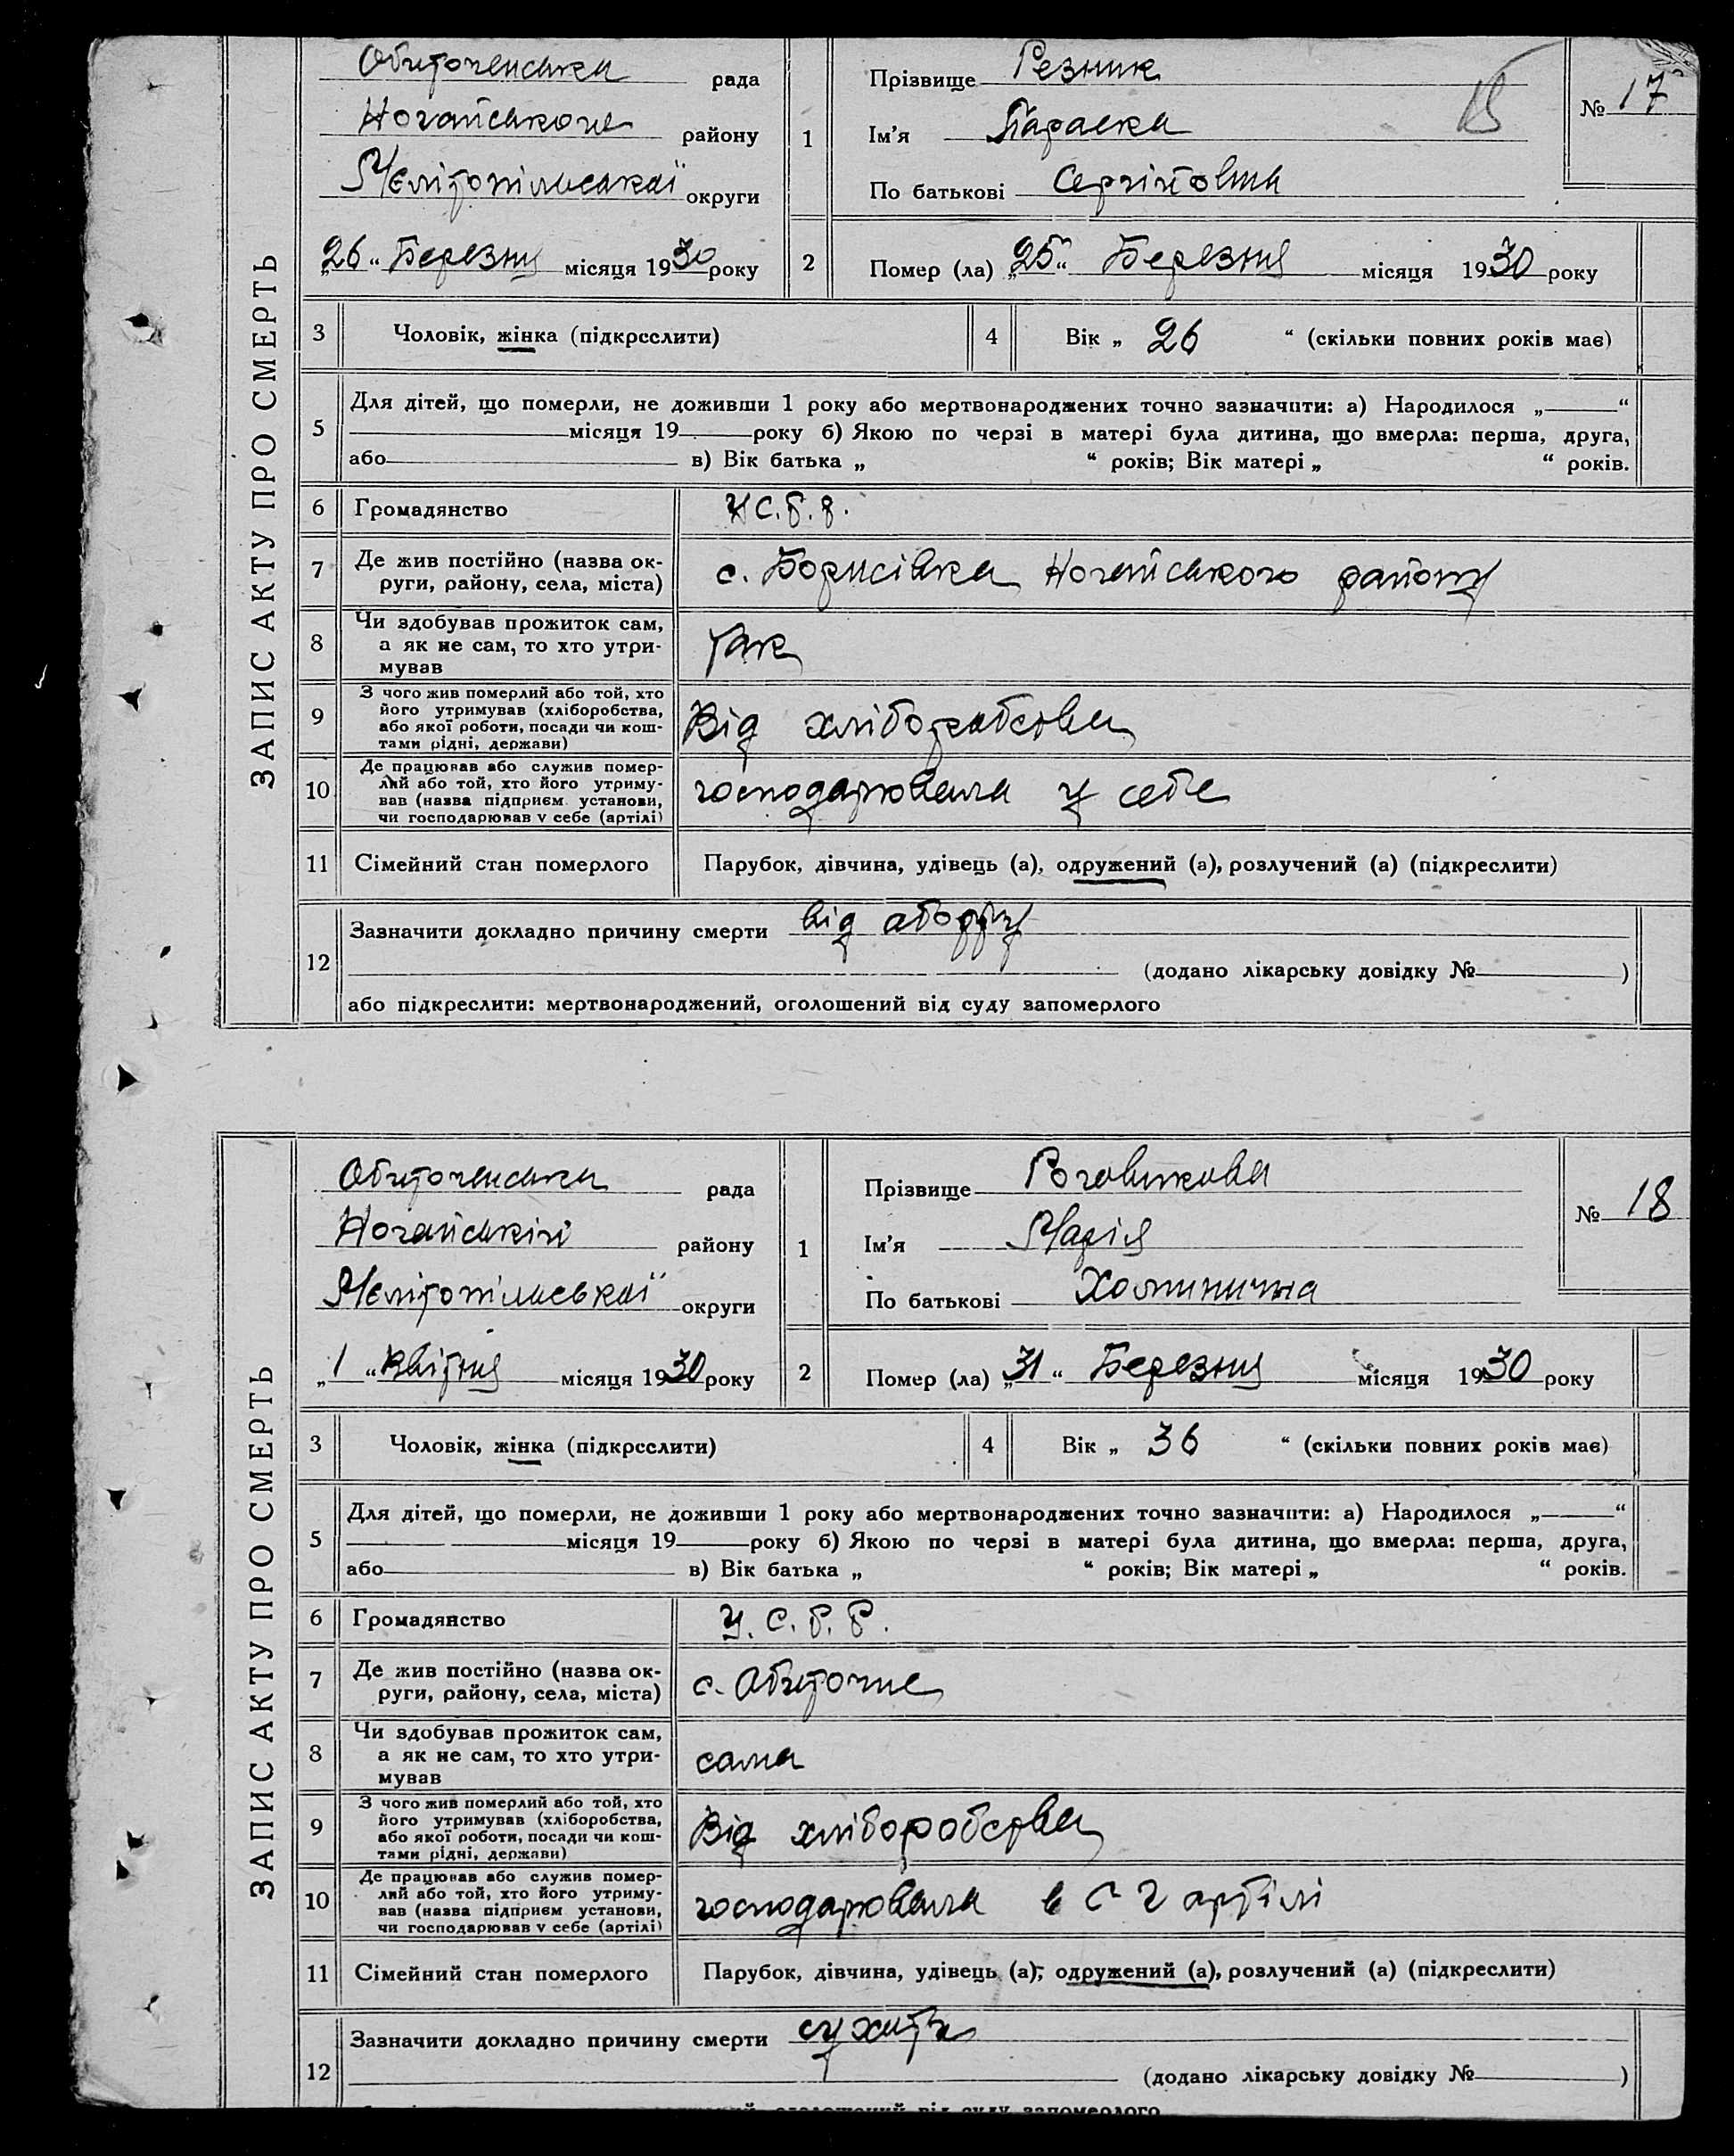 ЗАПИС АКТУ ПРО СМЕРТЬ
Обиточенська рада
Ногайського району
Мелітопільської округи
„26“ Березня місяця 1930 року
1 Прізвище Резник
Ім'я Параска
По батькові Сергіївна
№ 17
2 Помер (ла) „25“ Березня місяця 1930 року
3 Чоловік, жінка (підкреслити)
4 Вік „ 26 “ (скільки повних років має)
5 Для дітей, що померли, не доживши 1 року або мертвонароджених точно зазначити: а) Народилося „ “
місяця 19 року б) Якою по черзі в матері була дитина, що вмерла: перша, друга,
або в) Вік батька „ “ років; Вік матері „ “ років.
6 Громадянство УС.Р.Р.
7 Де жив постійно (назва ок-
руги, району, села, міста) с. Борисівка Ногайського району
8 Чи здобував прожиток сам,
а як не сам, то хто утри-
мував так
9 З чого жив померлий або той, хто
його утримував (хліборобства,
або якої роботи, посади чи кош-
тами рідні, держави) Від хліборобства
10 Де працював або служив помер-
лий або той, хто його утриму-
вав (назва підприєм. установи,
чи господарював у себе (артілі) господарювала у себе
11 Сімейний стан померлого Парубок, дівчина, удівець (а), одружений (а), розлучений (а) (підкреслити)
12 Зазначити докладно причину смерти від аборту
(додано лікарську довідку № )
або підкреслити: мертвонароджений, оголошений від суду запомерлого
ЗАПИС АКТУ ПРО СМЕРТЬ
Обиточенська рада
Ногайській району
Мелітопільської округи
„1“ Квітня місяця 1930 року
1 Прізвище Роговикова
Ім'я Марія
По батькові
№ 18
2 Помер (ла) „31“ Березня місяця 1930 року
3 Чоловік, жінка (підкреслити)
4 Вік „ 36 “ (скільки повних років має)
5 Для дітей, що померли, не доживши 1 року або мертвонароджених точно зазначити: а) Народилося „ “
місяця 19 року б) Якою по черзі в матері була дитина, що вмерла: перша, друга,
або в) Вік батька „ “ років; Вік матері „ “ років.
6 Громадянство У.С.Р.Р.
7 Де жив постійно (назва ок-
руги, району, села, міста) с. Обиточне
8 Чи здобував прожиток сам,
а як не сам, то хто утри-
мував сама
9 З чого жив померлий або той, хто
його утримував (хліборобства,
або якої роботи, посади чи кош-
тами рідні, держави) Від хліборобства
10 Де працював або служив помер-
лий або той, хто його утриму-
вав (назва підприєм. установи,
чи господарював у себе (артілі) господарювала в С Г артілі
11 Сімейний стан померлого Парубок, дівчина, удівець (а), одружений (а), розлучений (а) (підкреслити)
12 Зазначити докладно причину смерти сухоти
(додано лікарську довідку № )
оголошений від суду запомерлого